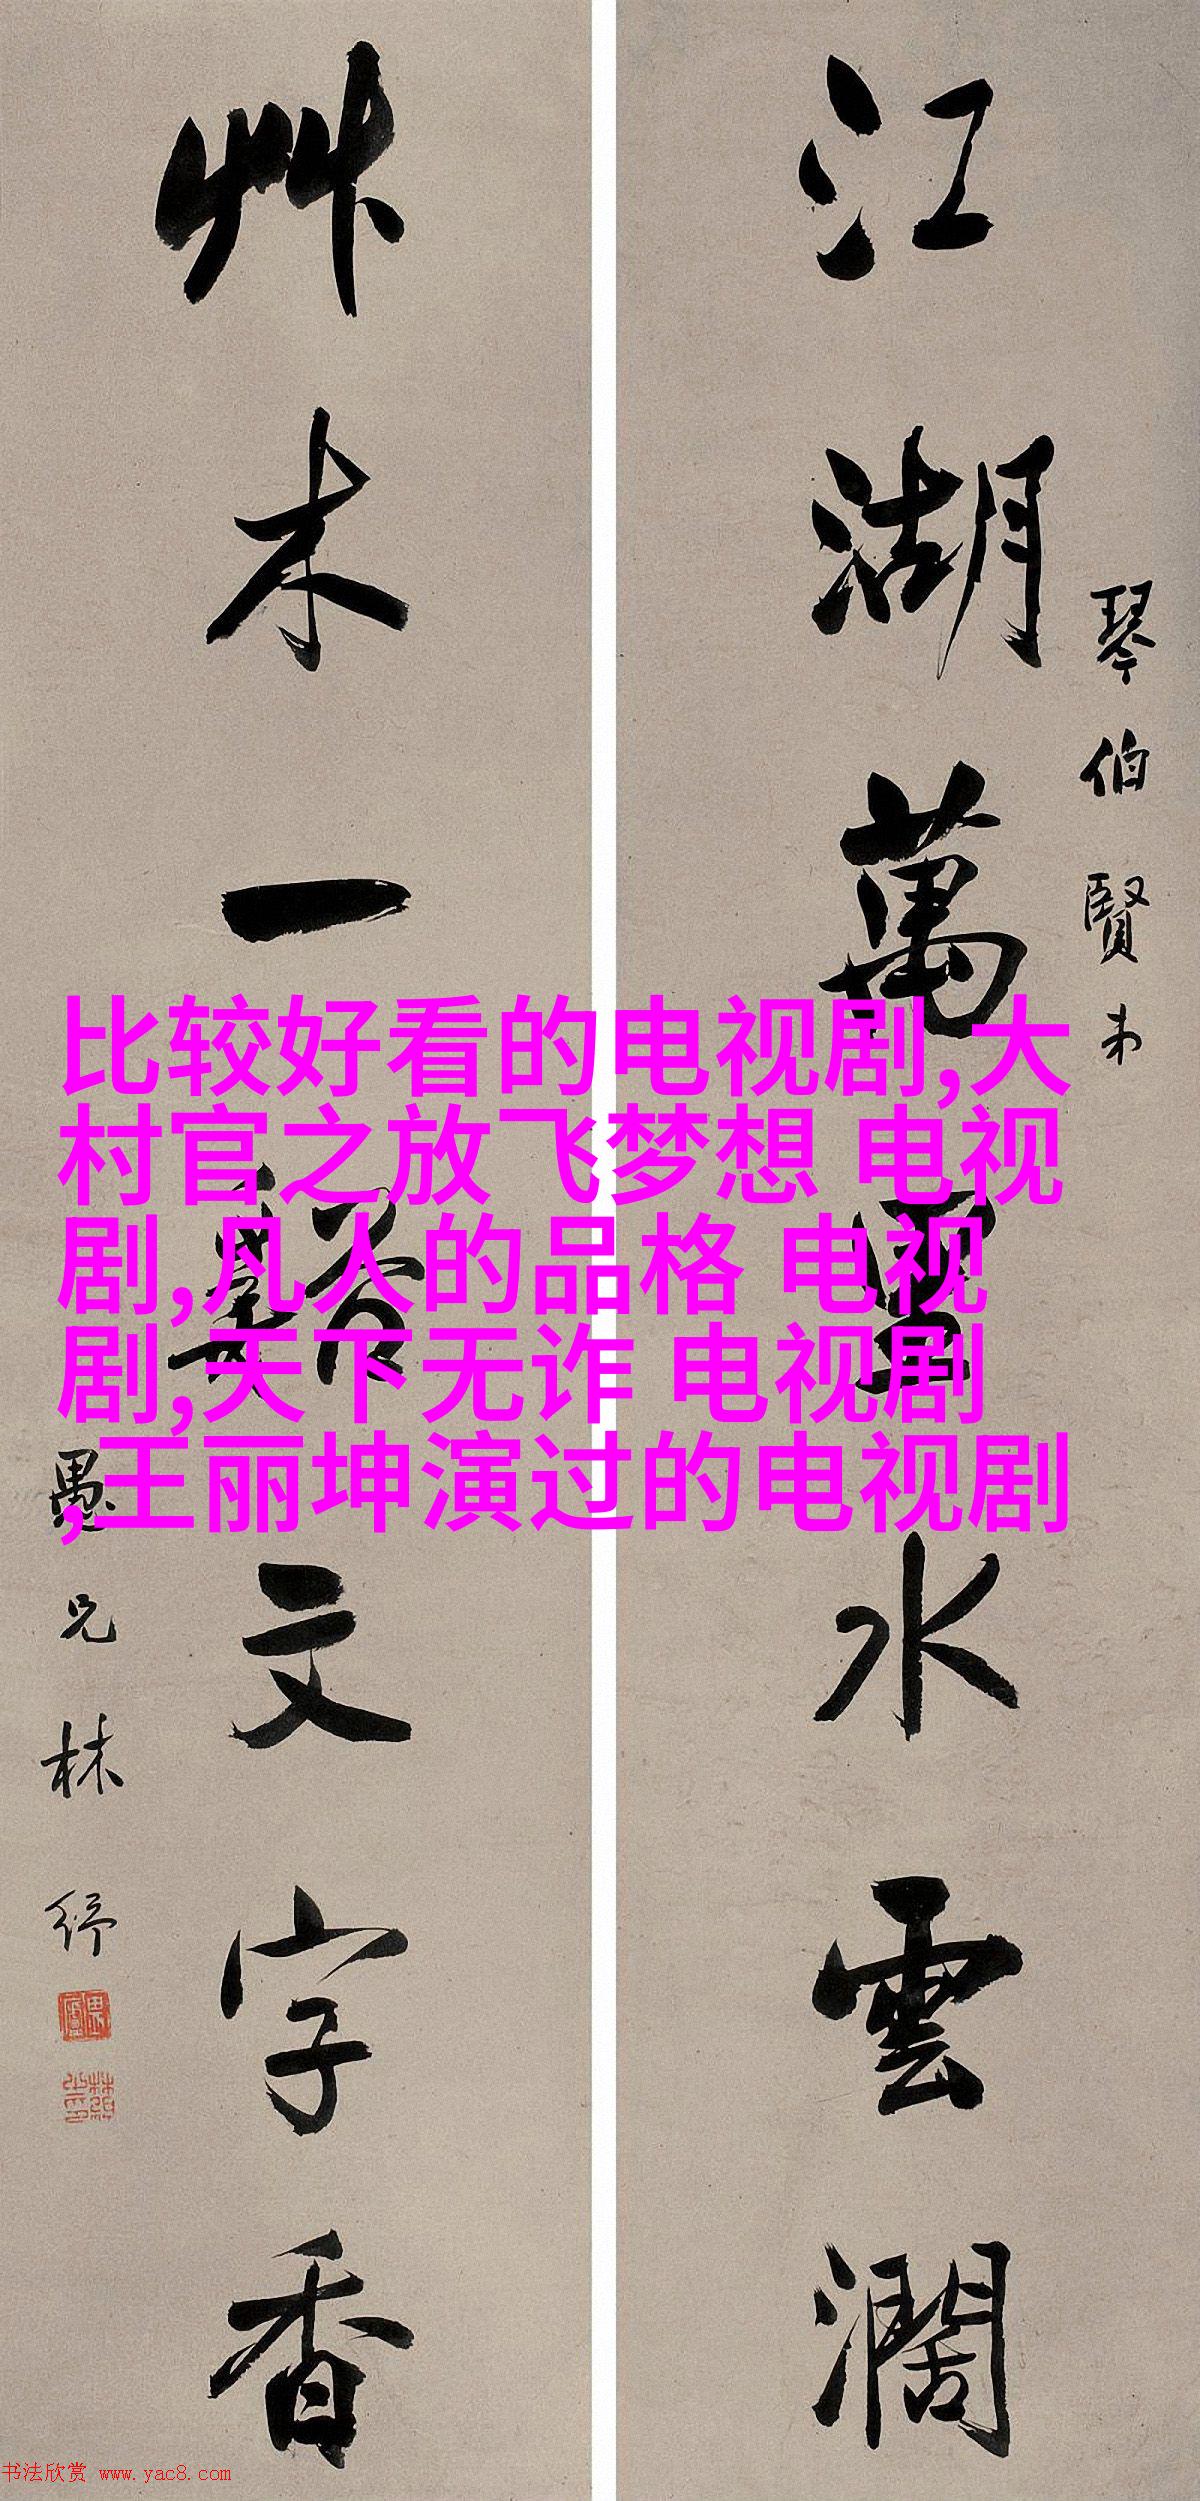 琴伯賢弟
江湖萬里水雲濶
艸木一谿文字香
愚兄林紓
畏廬
林紓之印
比较好看的电视剧,大
村官之放飞梦想 电视
剧,凡人的品格 电视
剧,天下无诈 电视剧
,王丽坤演过的电视剧
书法欣赏 www.yac8.com